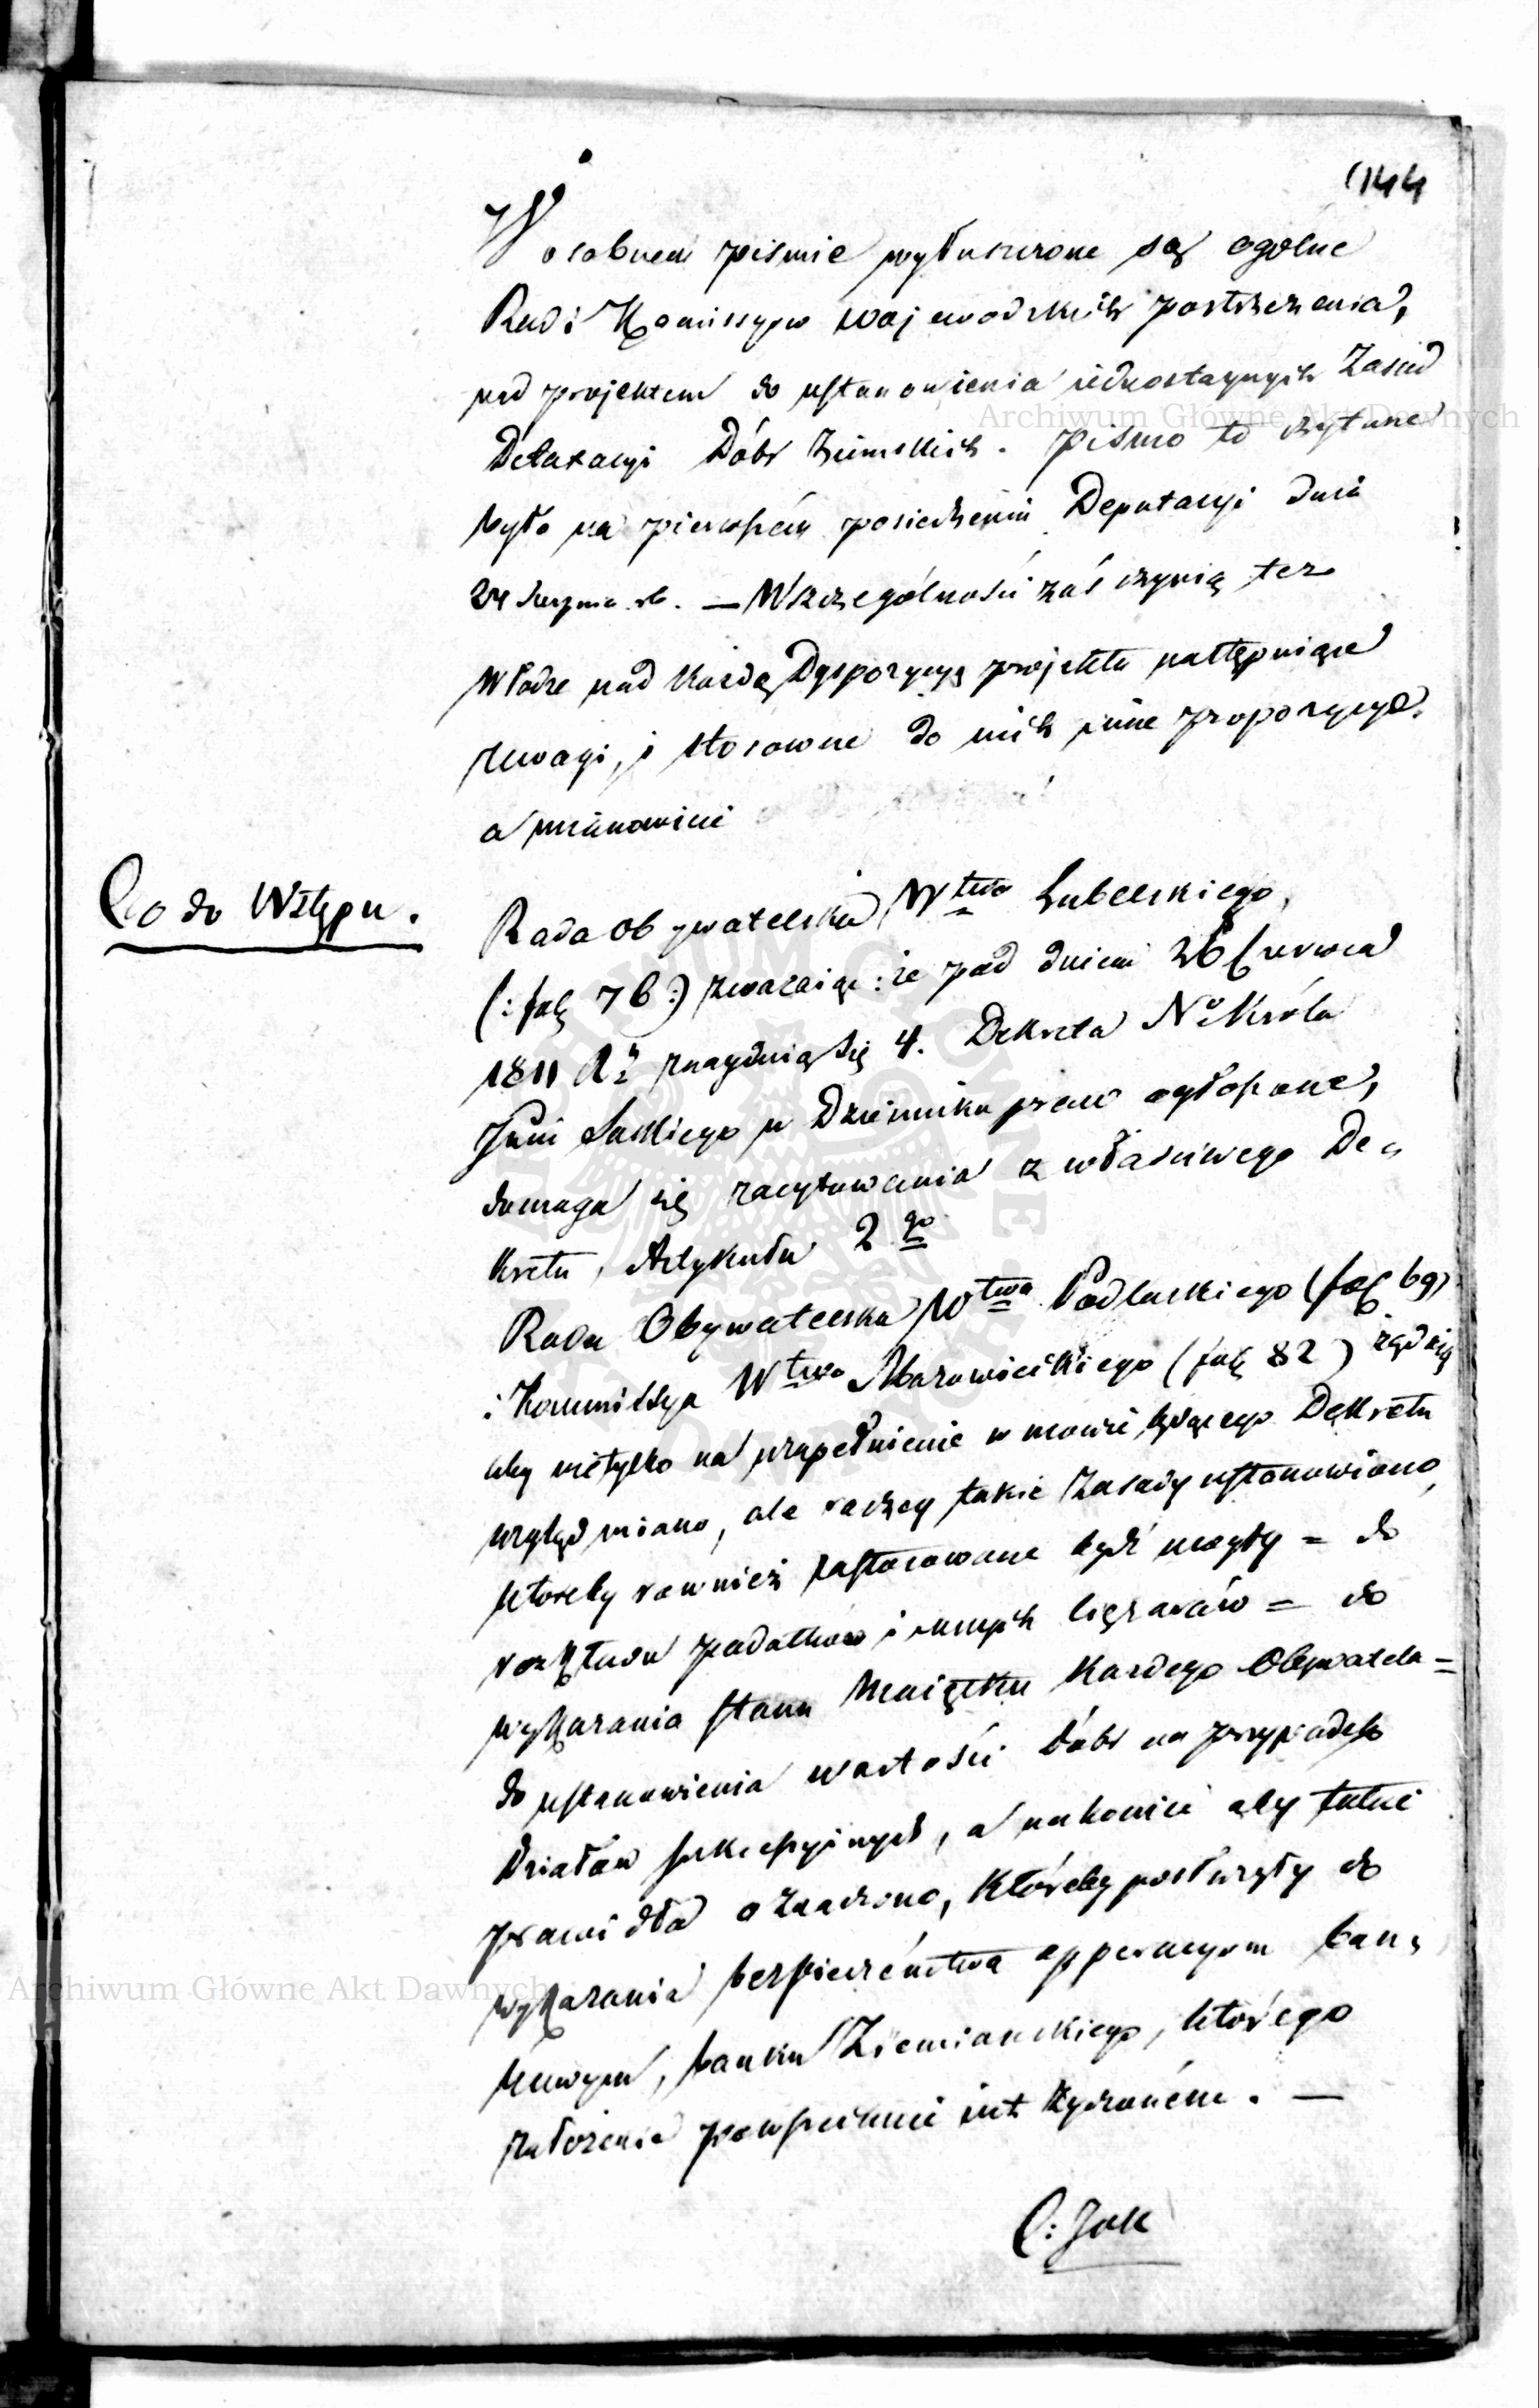 144
W osobnem piśmie wyłuszczone są ogólne
Rad i Kommissyow Wojewodzkich postrzeżenia,
nad projektem do ustanowienia iednostaynych Zasad
Detaxacyi Dóbr Ziemskich. Pismo to czytane
było na pierwszém posiedzeniu Deputacyi dnia
24 Sierpnia rb. — W szczególności zaś czynią też
Władze nad każdą Dyspozycyą projektu następuiące
uwagi, i stosowne do nich inne propozycye.
a mianowicie
Co do Wstępu.
Rada Obywatelska Wtwa Lubelskiego,
(: fol. 76 :) zważaiąc: że pod dniem 26 Czerwca
1811 R. znayduią się 4. Dekreta No Króla
Jmci Saskiego w Dzienniku praw ogłoszone,
domaga się zacytowania z właściwego De„
kretu, Artykułu 2go
Rada Obywatelska Wtwa Podlaskiego (fol 69)
i Kommissya Wtwa Mazowieckiego (fol 82) żądaią
aby nietylko na uzupełnienie w mowie będącego Dekretu
wzgląd miano, ale raczey takie Zasady ustanowiono,
któreby rownież zastosowane bydź mogły = do
rozkładu podatków i innych ciężarów = do
wykazania stanu Maiątku każdego Obywatela =
do ustanowienia wartości Dóbr na przypadek
Działów sukcessyinych, a nakoniec aby takie
prawidła oznaczono, któreby posłużyły do
wykazania bezpieczeństwa opperacyom ban„
kowym, banku Ziemianskiego, którego
założenie powszechnie iest życzoném. —
C: Jak
Archiwum Główne Akt Dawnych
Archiwum Główne Akt Dawnych